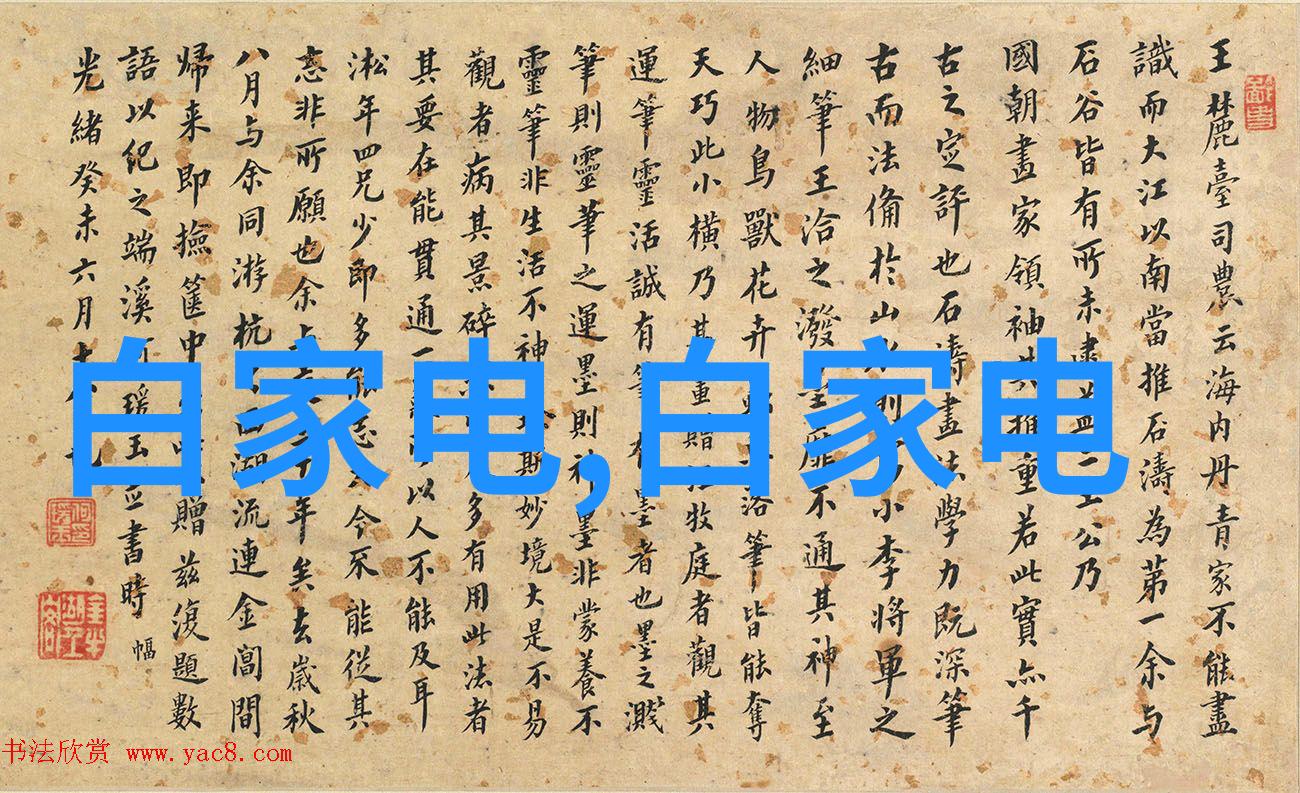 王麓臺司農云海內丹青家不能盡
識而大江以南當推石濤為第一余与
石谷皆有所未逮蓋二公乃
國朝畫家領袖其推重若此實亦千
古之定評也石濤畫法學力既深筆
古而法俻於山水則大小李將軍之
細筆王洽之潑墨靡不通其神至
人物鳥獸花卉落筆皆能奪
天巧此小橫乃其重贈江牧庭者觀其
運筆靈活誠有筆有墨者也墨之濺
筆則靈筆之運墨則神墨非蒙養不
靈筆非生活不神斯妙境大是不易
觀者病其景碎多有用此法者
其要在能貫通一以人不能及耳
淞年四兄少即多能志今不能從其
志非所願也余年矣去歲秋
八月与余同游杭西湖流連金閶間
歸来即撿篋中贈茲復題數
語以紀之端溪何瑗玉並書時
光緒癸未六月十
幅
白家电,白家电
书法欣赏 www.yac8.com